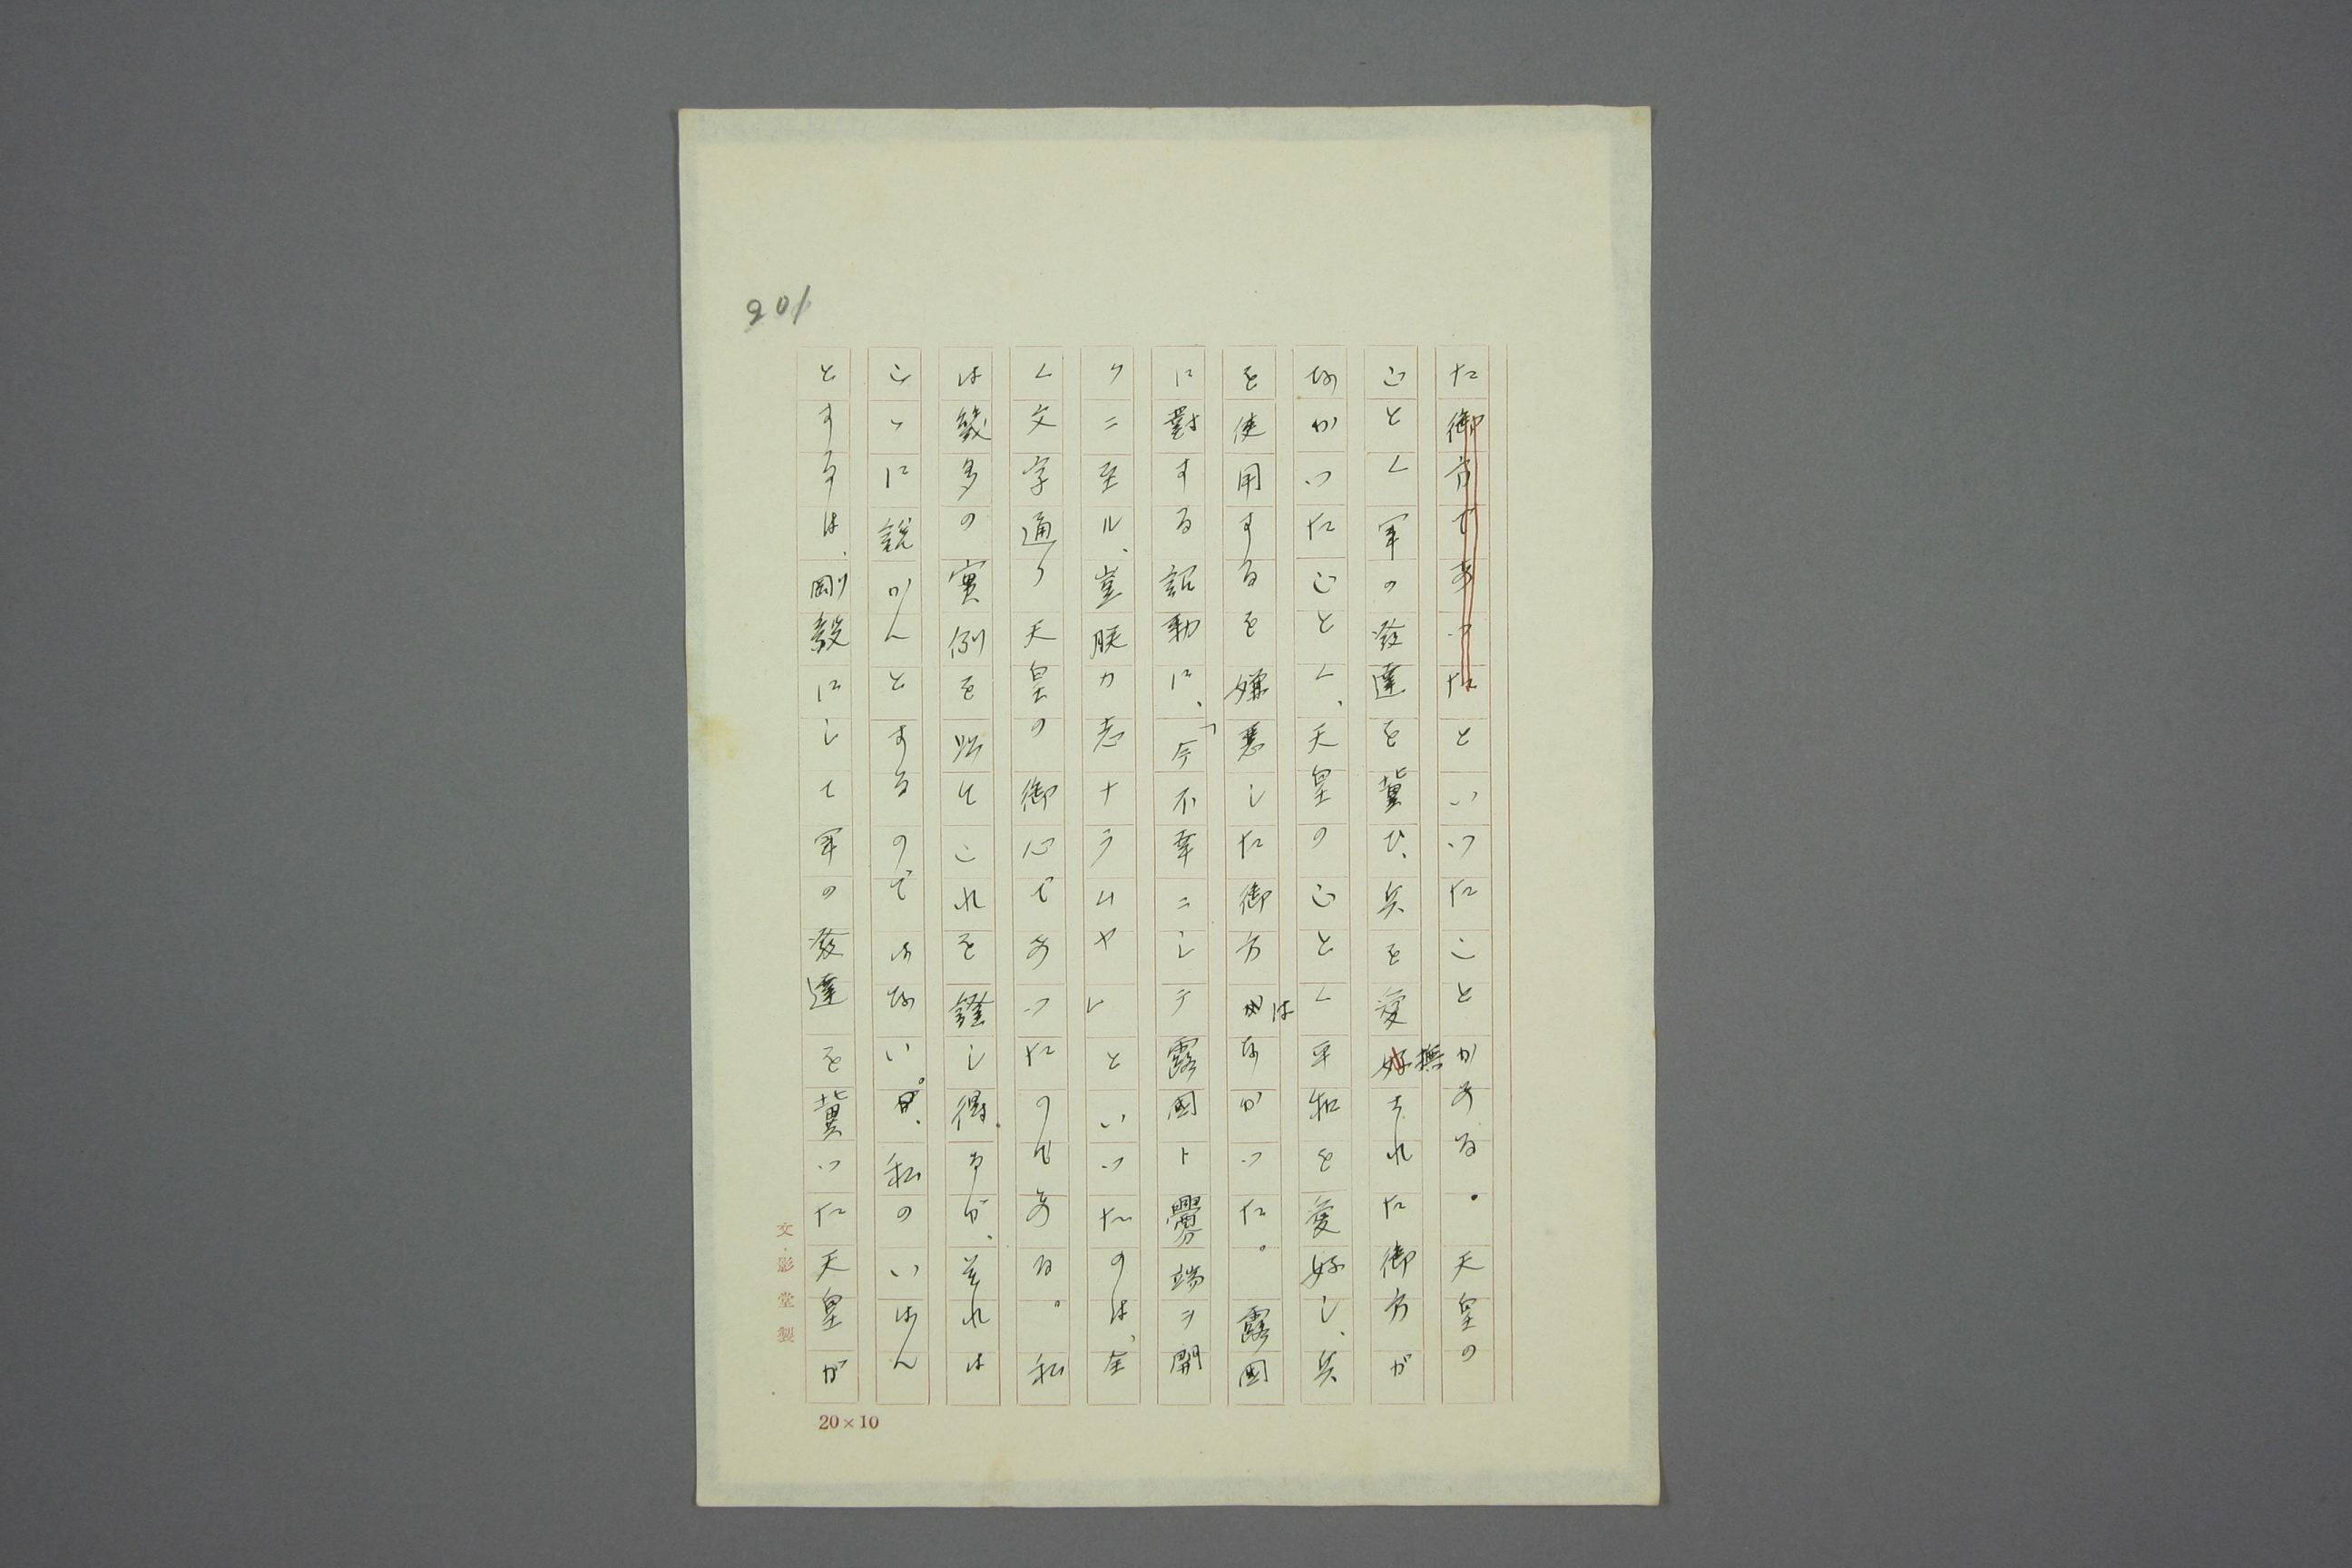 201
た御方であつたといつたことがある。天皇の
ごとく軍の發達を冀ひ、兵を愛撫された御方が
なかつたごとく、天皇のごとく平和を愛好し、兵
を使用するを嫌惡した御方はなかつた。露國
に對する詔勅に、「今不幸ニシテ露國ト釁端ヲ開
クニ至ル、豈朕カ志ナラムヤ」といつたのは、全
く文字通り天皇の御心であつたのである。私
は幾多の實例を以てこれを證し得るが、それは
こゝに說かんとするのではない。私のいはん
とするは、剛毅にして軍の發達を冀つた天皇が
文影堂製
20×10